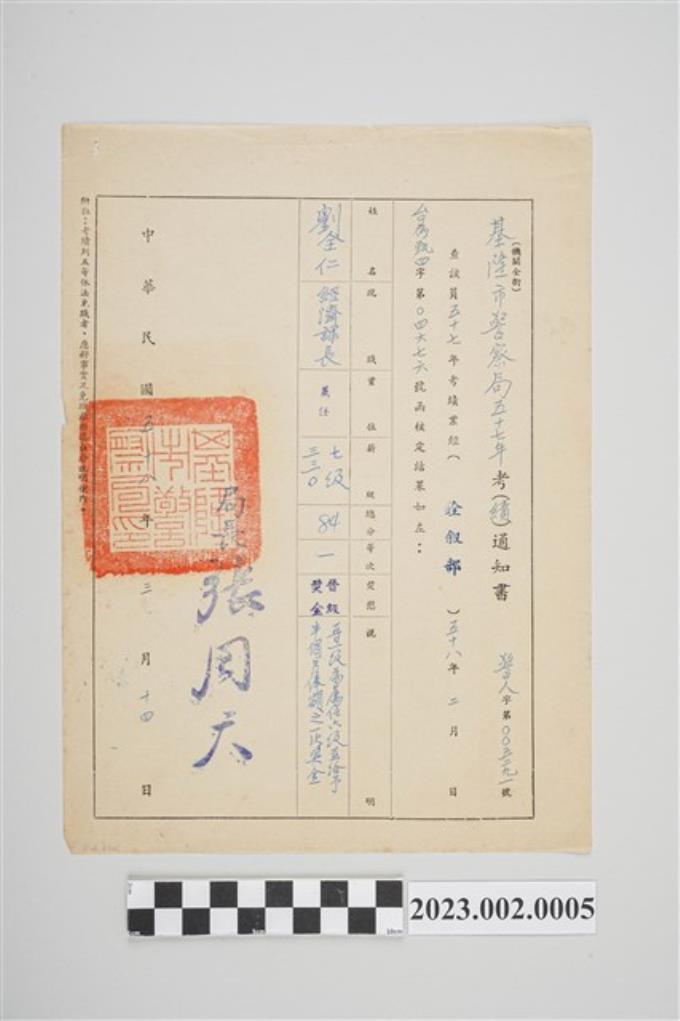 (機關全銜)
基隆市警察局五十七年考(績)通知書 警人字第００五二九一號
查該員五十七年考績業經(銓敘部)五十八年二月 日
台為甄四字第０四六七六號函核定結果如左：
姓名 現職 官任 薪級 總分 等次 獎懲 說明
劉全仁 經濟課長 委任 七級 三三０ 84 一 晉級 獎金 晉一級為委任六級並給予
半個月俸額之一次獎金
局長 張周天
中華民國五十八年三月十四日
附註：考績列五等依法免職者，應將事實及免職
2023.002.0005